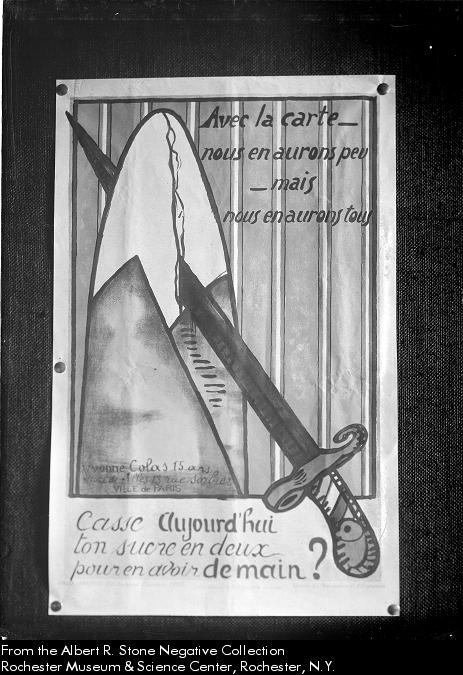 Avec la carte_
nous en aurons peu
_ mais
nous en aurons tous
Yvonne Colas 15 ans
VILLE de PARIS
Casse Aujourd'hui
ton sucre en deux
pour en avoir demain?
From the Albert R. Stone Negative Collection
Rochester Museum & Science Center, Rochester, N.Y.